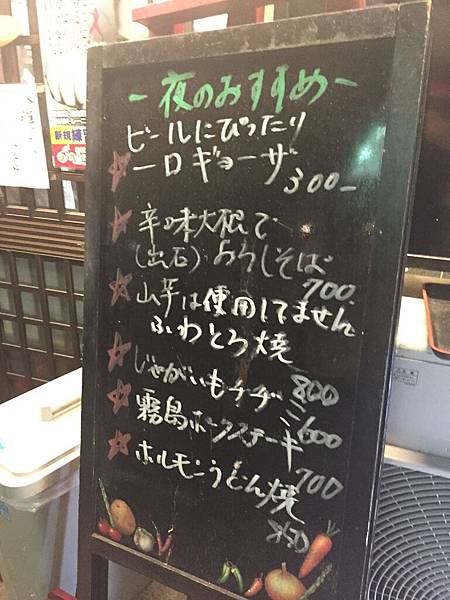 -夜のおすすめ-
ビールにぴったり
☆一口ギョーザ
300-
☆辛味大根で
(出石)おろしそば
700.
☆山芋は使用してません
ふわとろ焼
800
☆じゃがいもチヂミ
600
☆霧島ポークステーキ
700
☆ホルモンうどん焼
850
新規